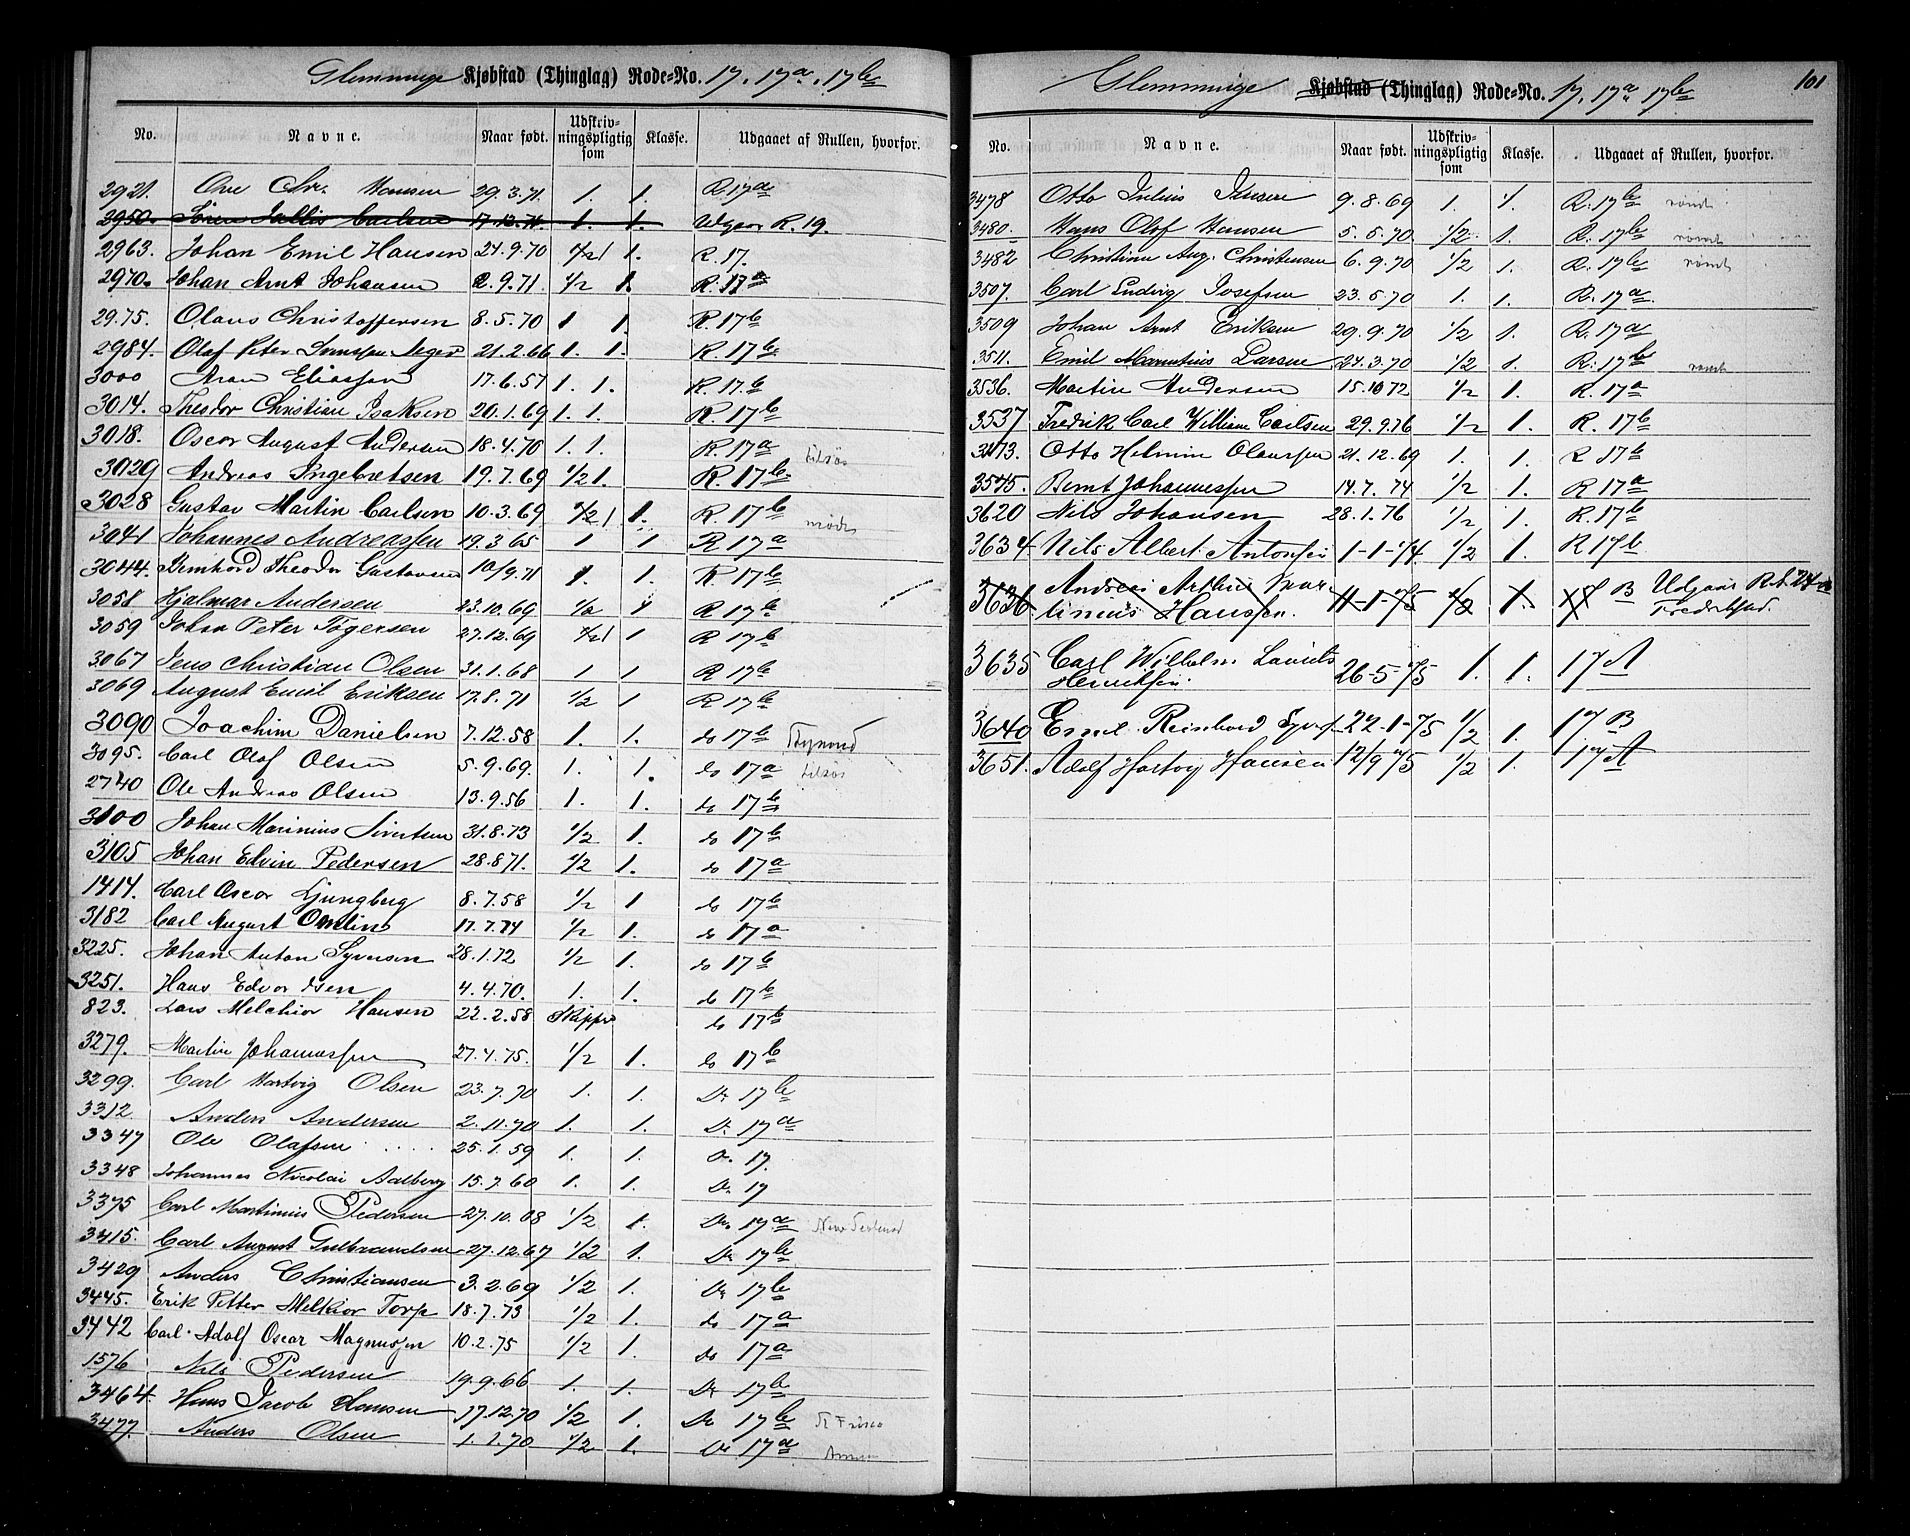 Glemminge Kjøbstad (Thinglag) Rode=No. 17. 17a. 17b
No. Navne. Naar født. Udskriv-ningspligtig som Klasse. Udgaaet af Rullen, hvorfor.
2921. Ove Chr. Hansen 29.3.71. 1. 1. R. 17a
2950. Sören Julius Carlsen 17.12.71. 1. 1. Udgaar R. 19.
2963. Johan Emil Hansen 24.9.70 1/2 1. R. 17.
2970. Johan Arnt Johansen 2.9.71. 1/2 1. R. 17a
2975. Olaus Christoffersen 8.5.70 1 1. R. 17b
2984. Olaf Peter 21.2.66 1. 1. R. 17b
3000 Aron Eliassen 17.6.57 1. 1. R. 17b
3014. Theodor Christian Isaksen 20.1.69 1. 1. R. 17b
3018. Oscar August Andersen 18.4.70 1. 1. R. 17a tilsös
3029 Andreas Ingebretsen 19.7.69 1/2 1. R. 17b
3028 Gustav Martin Carlsen 10.3.69 1/2 1. R. 17b
3041 Johannes Andreassen 19.3.65 1 1 R 17a
3044. Bernhard Theodor Gustavsen 10/9.71 1. 1. R. 17b
3058 Hjalmar Andersen 23.10.69 1/2 1 R 17b
3059 Johan Peter Tögersen 27.12.69 1/2 1 R 17b
3067 Jens Christian Olsen 31.1.68 1 1 R 17b
3069 August Emil Eriksen 17.8.71 1/2 1 R 17b
3090 Joachim Danielsen 7.12.58 1. 1. do 17b
3095. Carl Olof Olsen 5.9.69. 1. 1. do 17a tilsös
2740 Ole Andreas Olsen 13.9.56 1. 1. do 17b
3100 Johan Marinius Sivertsen 31.8.73 1/2 1. do 17b
3105 Johan Edvin Pedersen 28.8.71. 1/2 1. do 17a
1414. Carl Oscar Ljungberg 8.7.58 1/2 1 do 17b
3182 Carl August 17.7.74 1/2 1. do 17a
3225. Johan Anton Syversen 28.1.72 1/2 1. do 17b
3251. Hans Edvardsen 4.4.70. 1. 1. do 17b
823. Lars Melchior Hansen 22.2.58 Skipper do 17b
3279. Martin Johannessen 27.4.75. 1/2 1. do 17b
3299. Carl Hartvig Olsen 23.7.70 1. 1. Do 17b
3312. Anders Andersen 2.11.70 1. 1. Do 17a
3347 Ole Olafsen 25.1.59 1. 1. Do 17.
3348 Johannes Nicolai Aalberg 15.7.60 1. 1. Do 17
3375 Carl Martinius Pedersen 27.10.68 1/2 1. Do 17a
3415. Carl August Gulbrandsen 27.12.67 1/2 1. Do 17b
3429 Anders Christiansen 3.2.69 1/2 1. Do 17b
3445. Erik Petter Melkior Torp 18.7.73 1/2 1. do 17a
3442 Carl Adolf Oscar Magnussen 10.2.75 1/2 1. Do 17a
1576 Nils Pedersen 19.9.66 1. 1. Do 17b
3464. Hans Jacob Hansen 17.12.70 1/2 1. Do 17b St Frisco
3477. Anders Olsen 1.1.70 1/2 1. Do 17a
Glemminge Kjøbstad (Thinglag) Rode=No. 17. 17a 17b 101
No. Navne. Naar født. Udskriv-ningspligtig som Klasse. Udgaaet af Rullen, hvorfor.
3478 Otto Julius Jensen 9.8.69 1. 1. R. 17b römt
3480. Hans Olof Hansen 5.5.70. 1/2 1. R. 17b römt
3482 Christian Aug. Christensen 6.9.70 1/2 1. R. 17b römt
3507. Carl Ludvig Josefsen 23.5.70 1. 1. R. 17a.
3509 Johan Arnt Eriksen 29.9.70 1/2 1. R. 17a
3511. Emil Larsen 24.3.70 1/2 1. R. 17b römt
3536. Martin Andersen 15.10.72 1/2 1. R. 17a
3537 Fredrik Carl William Carlsen 29.9.76 1/2 1. R. 17b
3173. Otto Helmin Olaussen 21.12.69 1. 1. R 17b
3575. Bernt Johannessen 14.7.74 1/2 1. R 17a
3620 Nils Johansen 28.1.76 1/2 1. R. 17b
3634 Nils Albert Antonsen 1-1-74. 1/2 1. R 17b
3636 Andreas Arthur Mar-tinius Hansen. 11-1-75 1/2 1. 17 B Udgaar R.1. 24 Fredrikstad.
3635 Carl Wilhelm Laurits Henriksen. 26-5-75 1. 1. 17 A
3640 Emil Reinhard Syvers. 22-1-75 1/2 1. 17 B
3651. Adolf Hartvig Hansen 12/9 75 1/2 1. 17 A